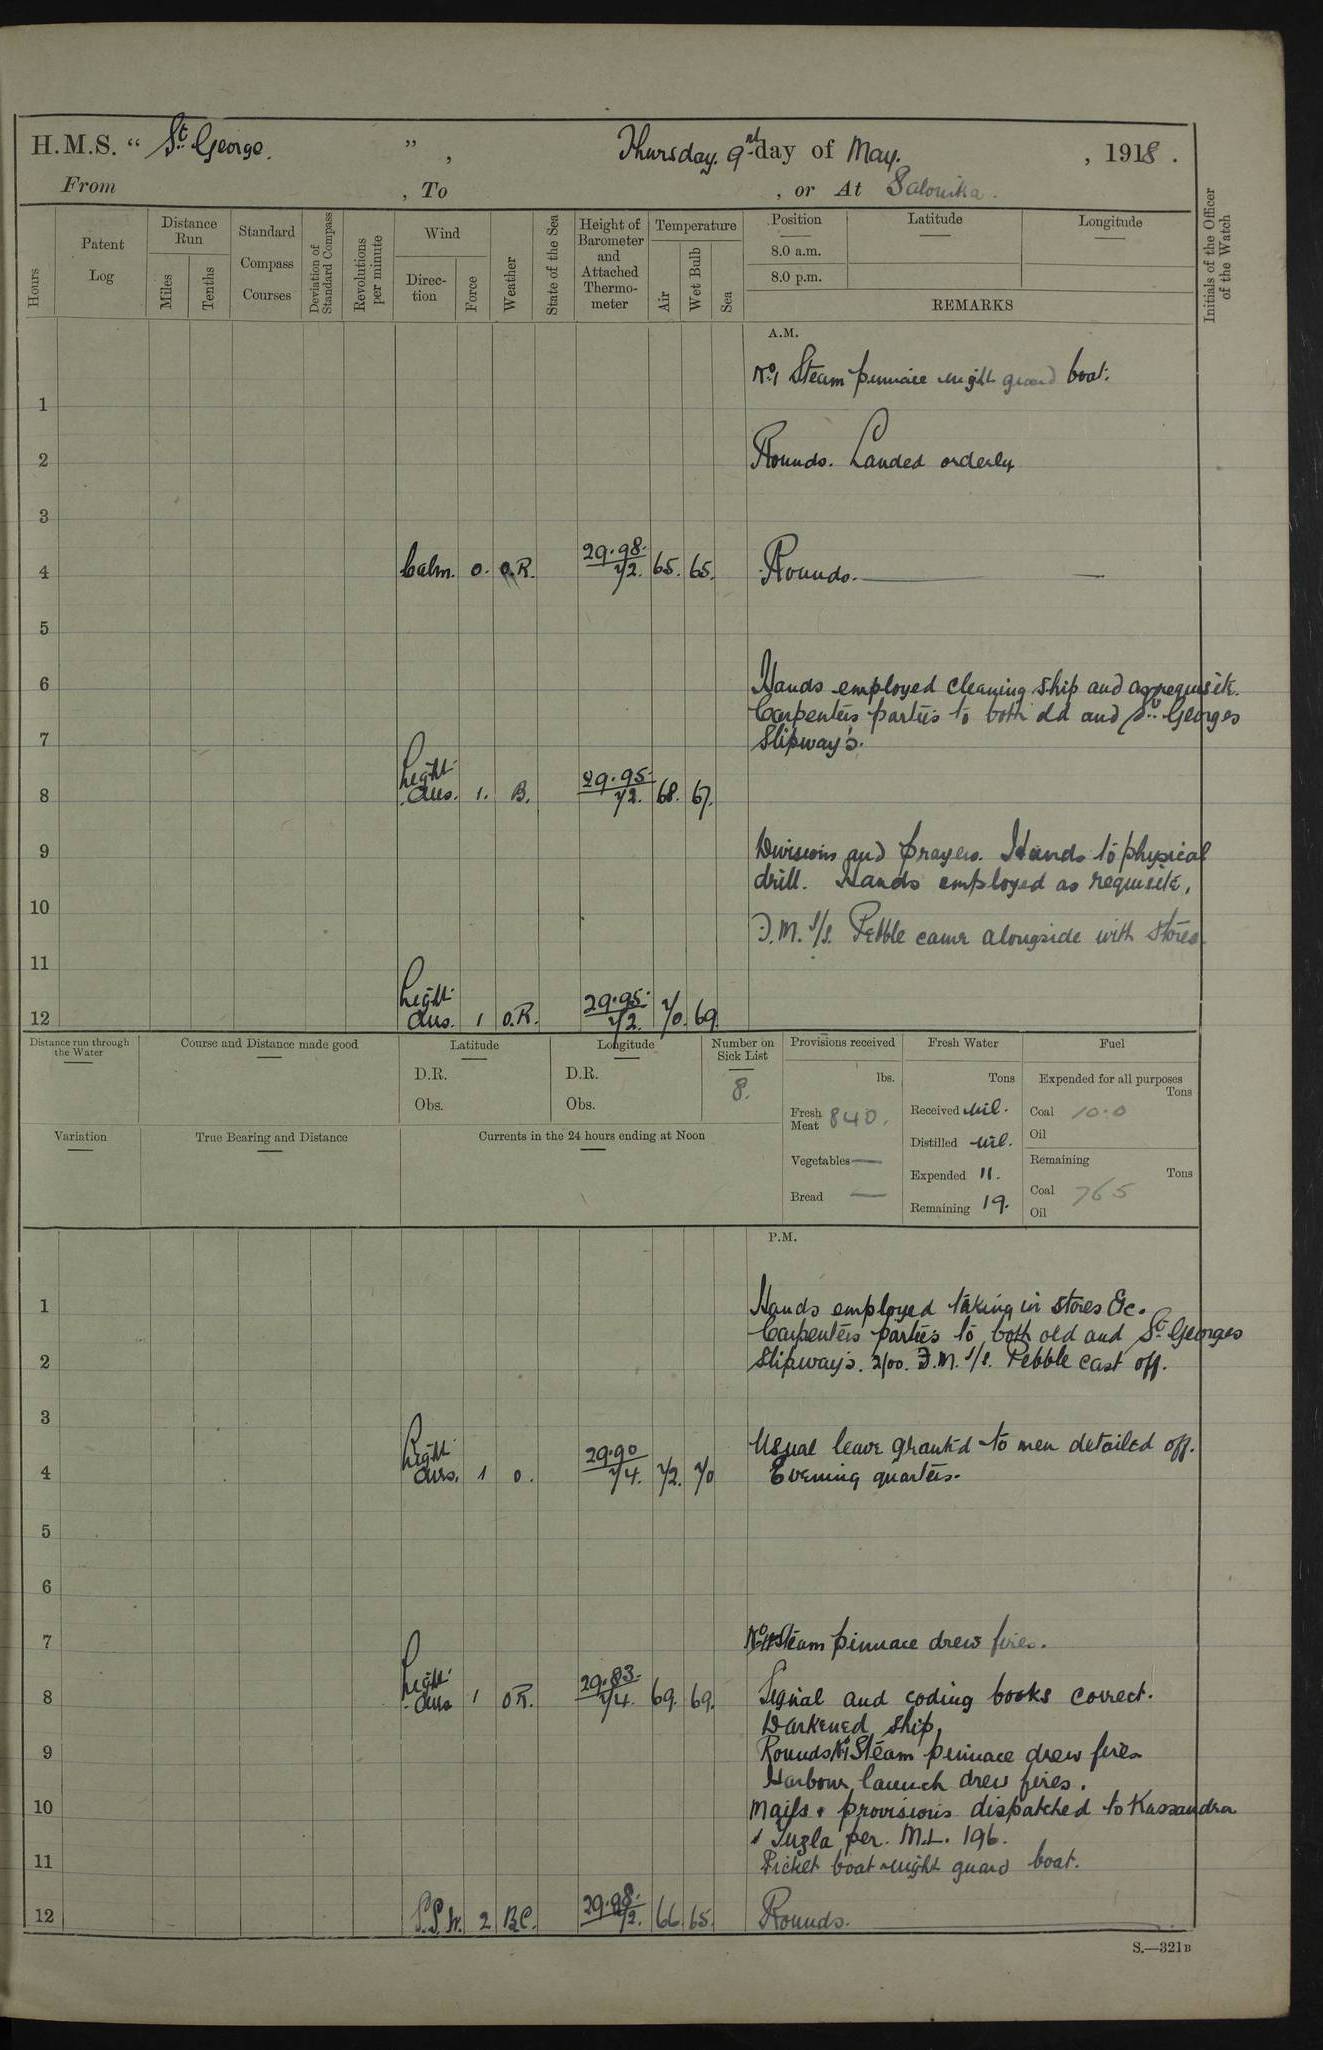 H.M.S. “ St. George. ” , Thursday. 9th day of May. , 1918 .
From , To , or At Salonika.
Hours
Patent Log
Distance Run
Miles
Tenths
Standard Compass Courses
Deviation of Standard Compass
Revolutions per minute
Wind
Direc-tion
Force
Weather
State of the Sea
Height of Barometer and Attached Thermo-meter
Temperature
Air
Wet Bulb
Sea
Position
Latitude
Longitude
8.0 a.m.
8.0 p.m.
REMARKS
Initials of the Officer of the Watch
A.M.
No.1 Steam pinnace night guard boat.
1
2 Rounds. Landed orderly
3
4 Calm. 0. O.R. 29.98. 72. 65. 65. Rounds.
5
6 Hands employed cleaning ship and as requisite.
Carpenters parties to both old and St. Georges
7 Slipway's.
8 Light airs. 1. B. 29.95. 72. 68. 67.
9 Divisions and prayers. Hands to physical
drill. Hands employed as requisite,
10
F.M. S/S. Pebble came alongside with stores.
11
12 Light airs. 1 O.R. 29.95. 72. 70. 69.
Distance run through the Water
Course and Distance made good
Latitude
D.R.
Obs.
Longitude
D.R.
Obs.
Number on Sick List
8.
Provisions received
lbs.
Fresh Meat 840.
Vegetables —
Bread —
Fresh Water
Tons
Received Nil.
Distilled Nil.
Expended 11.
Remaining 19.
Fuel
Expended for all purposes
Tons
Coal 10.0
Oil
Remaining
Tons
Coal 765
Oil
Variation
True Bearing and Distance
Currents in the 24 hours ending at Noon
P.M.
1 Hands employed taking in stores &c.
Carpenters parties to both old and St. Georges
2 Slipway's. 2/00. F.M. S/S. Pebble cast off.
3
Usual leave granted to men detailed off.
4 Light airs. 1 O. 29.90 74. 72. 70 Evening quarters.
5
6
7 Steam pinnace drew fires.
8 Light airs 1 O.R. 29.83. 74. 69. 69. Signal and coding books correct.
Darkened ship,
9 Rounds No1 Steam pinnace drew fires
Harbour launch drew fires.
10 Mails & provisions dispatched to Kassandra
& Tuzla per. M.L. 196.
11 Picket boat night guard boat.
12 S.S.W. 2 B.C. 29.98. 72. 66 65. Rounds.
S.—321B